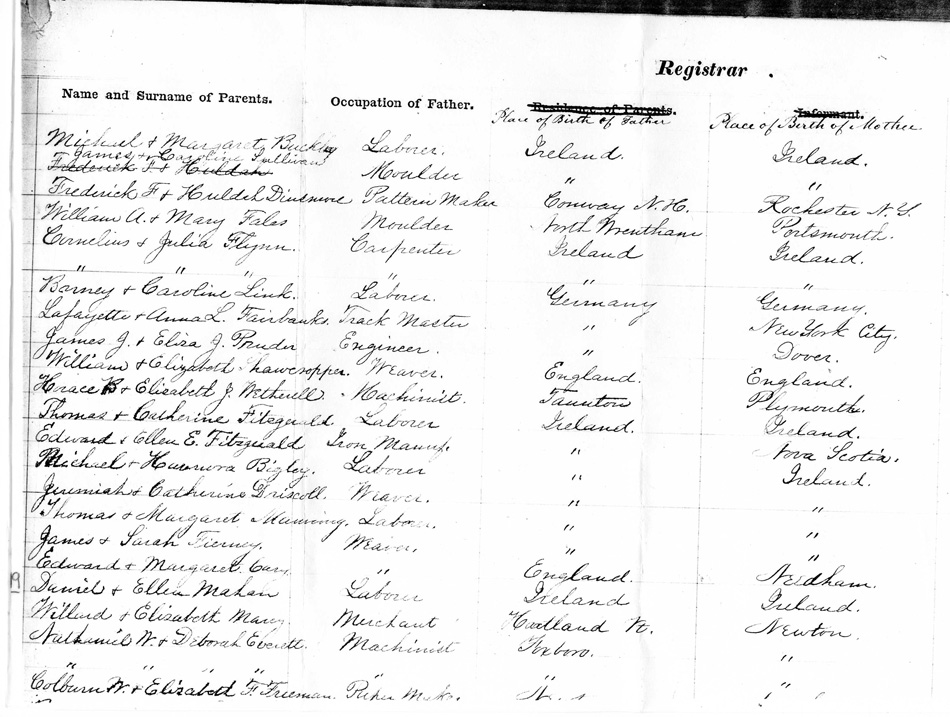 Registrar .
Name and Surname of Parents. Occupation of Father. Residence of Parents. Informant.
Place of Birth of Father Place of Birth of Mother
Michael & Margaret Buckley Laborer. Ireland. Ireland.
James & Caroline Sullivan Moulder " "
Frederick F & Huldah
Frederick F & Huldah Dinsmore Pattern Maker Conway N.H. Rochester N.Y.
William A. & Mary Fales Moulder North Wrentham Portsmouth.
Cornelius & Julia Flynn. Carpenter Ireland Ireland.
" " " " " "
Barney & Caroline Link. Laborer. Germany Germany.
Lafayette & Anna L. Fairbanks. Track Master " New York City.
James J. & Eliza J. Engineer. " Dover.
William & Elizabeth Weaver. England. England.
Horace B & Elisabeth J. Wetherell Machinist. Taunton Plymouth.
Thomas & Catherine Fitzgerald Laborer Ireland. Ireland.
Edward & Ellen E. Fitzgerald Iron " Nova Scotia.
Michael & Bigley. Laborer " Ireland.
Jeremiah & Catherine Driscoll. Weaver. " "
Thomas & Margaret Manning. Laborer. " "
James & Sarah Tierney. Weaver. " "
Edward & Margaret " England. Needham.
19
Daniel & Ellen Mahan Laborer Ireland Ireland.
Willard & Elizabeth Merchant Newton.
Nathaniel W. & Deborah Everett Machinist Foxboro. "
" " " " "
Colburn W. & Elizabeth F. Freeman